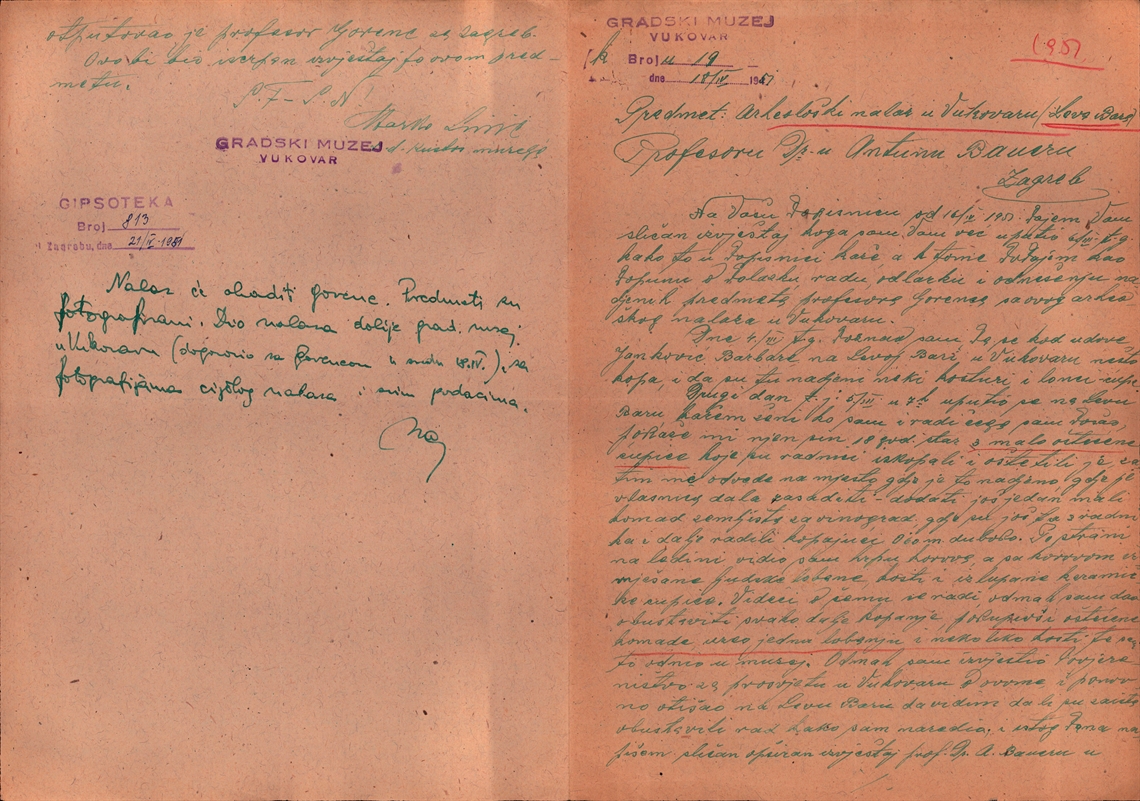 otputovao je profesor Gorenc za Zagreb.
Ovo bi bio iscrpan izvještaj po ovom pred-
metu.
S. F. - S. N.
Marko
GRADSKI MUZEJ
VUKOVAR
kustos muzeja
GIPSOTEKA
Broj 813
Zagrebu, dne 21/IV - 1951
Nalaz će obaditi Gorenc. Predmeti su
fotografirani. Dio nalaza dobije grad. muzej
u Vukovaru (dogovorio sa Gorencom 18.IV.), sa
fotografijama cijelog nalaza i svim podacima.
GRADSKI MUZEJ
VUKOVAR
Broj 19
dne 18/IV 1951
1951
Predmet: Arheološki nalaz u Vukovaru (Leva Bara)
Profesoru Dr-u Antunu Baueru
Zagreb
Na Vašu Dopisnicu od 16/IV 1951. Dajem Vam
sličan izvještaj koga sam Vam već uputio t. g.
kako to u Dopisnici kaže a k tome Dodajem kao
Dopunu o Dolasku radu, odlasku i odnošenju na
djenih predmeta profesora Gorenca sa ovog arheo
škog nalaza u Vukovaru.
Dne 4/III t. g. Doznao sam Da se kod udove
Janković Barbare na Levoj Bari, u Vukovaru nešto
kopa, i da su tu nadjeni neki kosturi i lonci - ćupi.
Drugi dan t. j. 5/III u 7h uputio se na Levu
Baru, kažem ženi ko sam i radi čega sam Došao,
pokaže mi njen sin 18 god. star 3 malo oštećene
ćupice koje su radnici izkopali i oštetili je, za
tim me odvede na mjesto gdje je to nadjeno gdje je
vlasnica dala zasaditi - dodati još jedan mali
komad zemljišta za vinograd, gdje su još ta 3 radni
ka i dalje radili kopajući duboko. Po strani
na ledini vidio sam hrpu korova, a sa korovom iz
mješane ljudske lobanje, kosti i izlupane kerami
ke ćupice. Videći o čemu se radi odmah sam dao
obustaviti svako dalje kopanje, pokupivši oštećene
komade, uzeo jednu lobanju i nekoliko kosti te sve
to odneo u muzej. Odmah sam izvjestio Povjere
ništvo za prosvjetu u Vukovaru o ovome, i ponov
no otišao na Levu Baru da vidim da li su zaista
obustavili rad kako sam naredio, i istog Dana na
pišem sličan opširan izvještaj prof. Dr. A. Baueru u